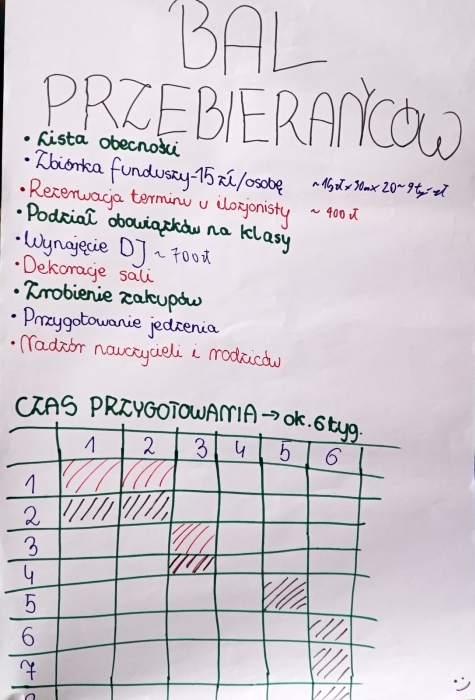 BAL
PRZEBIERAŃCÓW
• Lista obecności
• Zbiórka funduszy-15 zł/osobę ~15zł x 30 x 20 ~ 9 tyś zł
• Rezerwacja terminu u iluzjonisty ~ 400 zł
• Podział obowiązków na klasy
• Wynajęcie DJ ~ 700 zł
• Dekoracje sali
• Zrobienie zakupów
• Przygotowanie jedzenia
• Nadzór nauczycieli i rodziców
CZAS PRZYGOTOWANIA → ok. 6 tyg.
1 2 3 4 5 6
1
2
3
4
5
6
7